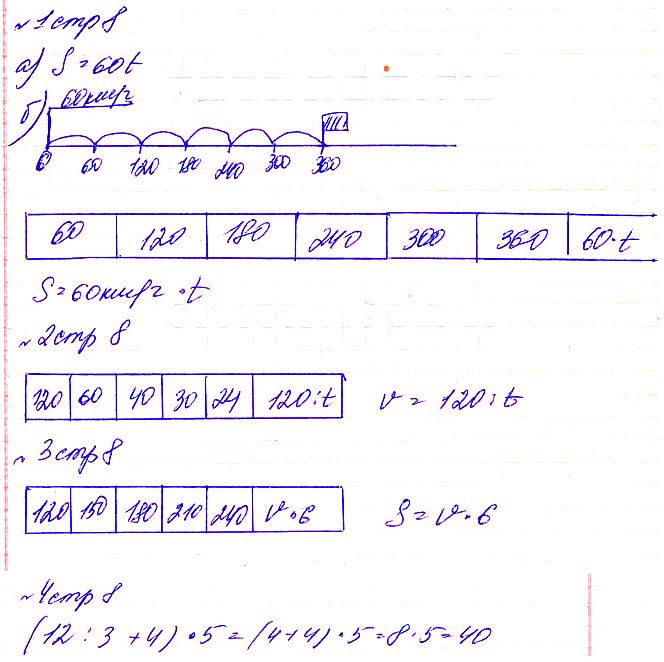 № 1 стр 8
а) S = 60t
б) 60 км/ч
0 60 120 180 240 300 360
60 120 180 240 300 360 60·t
S = 60 км/ч · t
№ 2 стр 8
120 60 40 30 24 120:t v = 120:t
№ 3 стр 8
120 150 180 210 240 v·6 S = v·6
№ 4 стр 8
(12 : 3 + 4) · 5 = (4+4) · 5 = 8 · 5 = 40